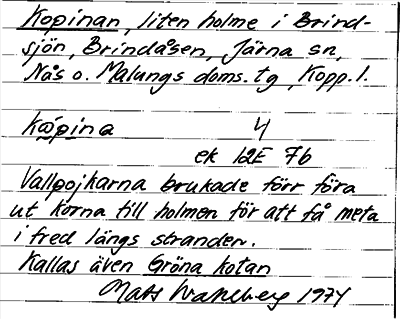 Kopinan, liten holme i Brind-
sjön, Brindåsen, Järna sn,
Nås o. Malungs doms.tg, Kopp.l.
Kopina 4
ek 12E 7b
Vallpojkarna brukade förr föra
ut korna till holmen för att få meta
i fred längs stranden.
Kallas även Gröna kotan
Mats Wahlberg 1974